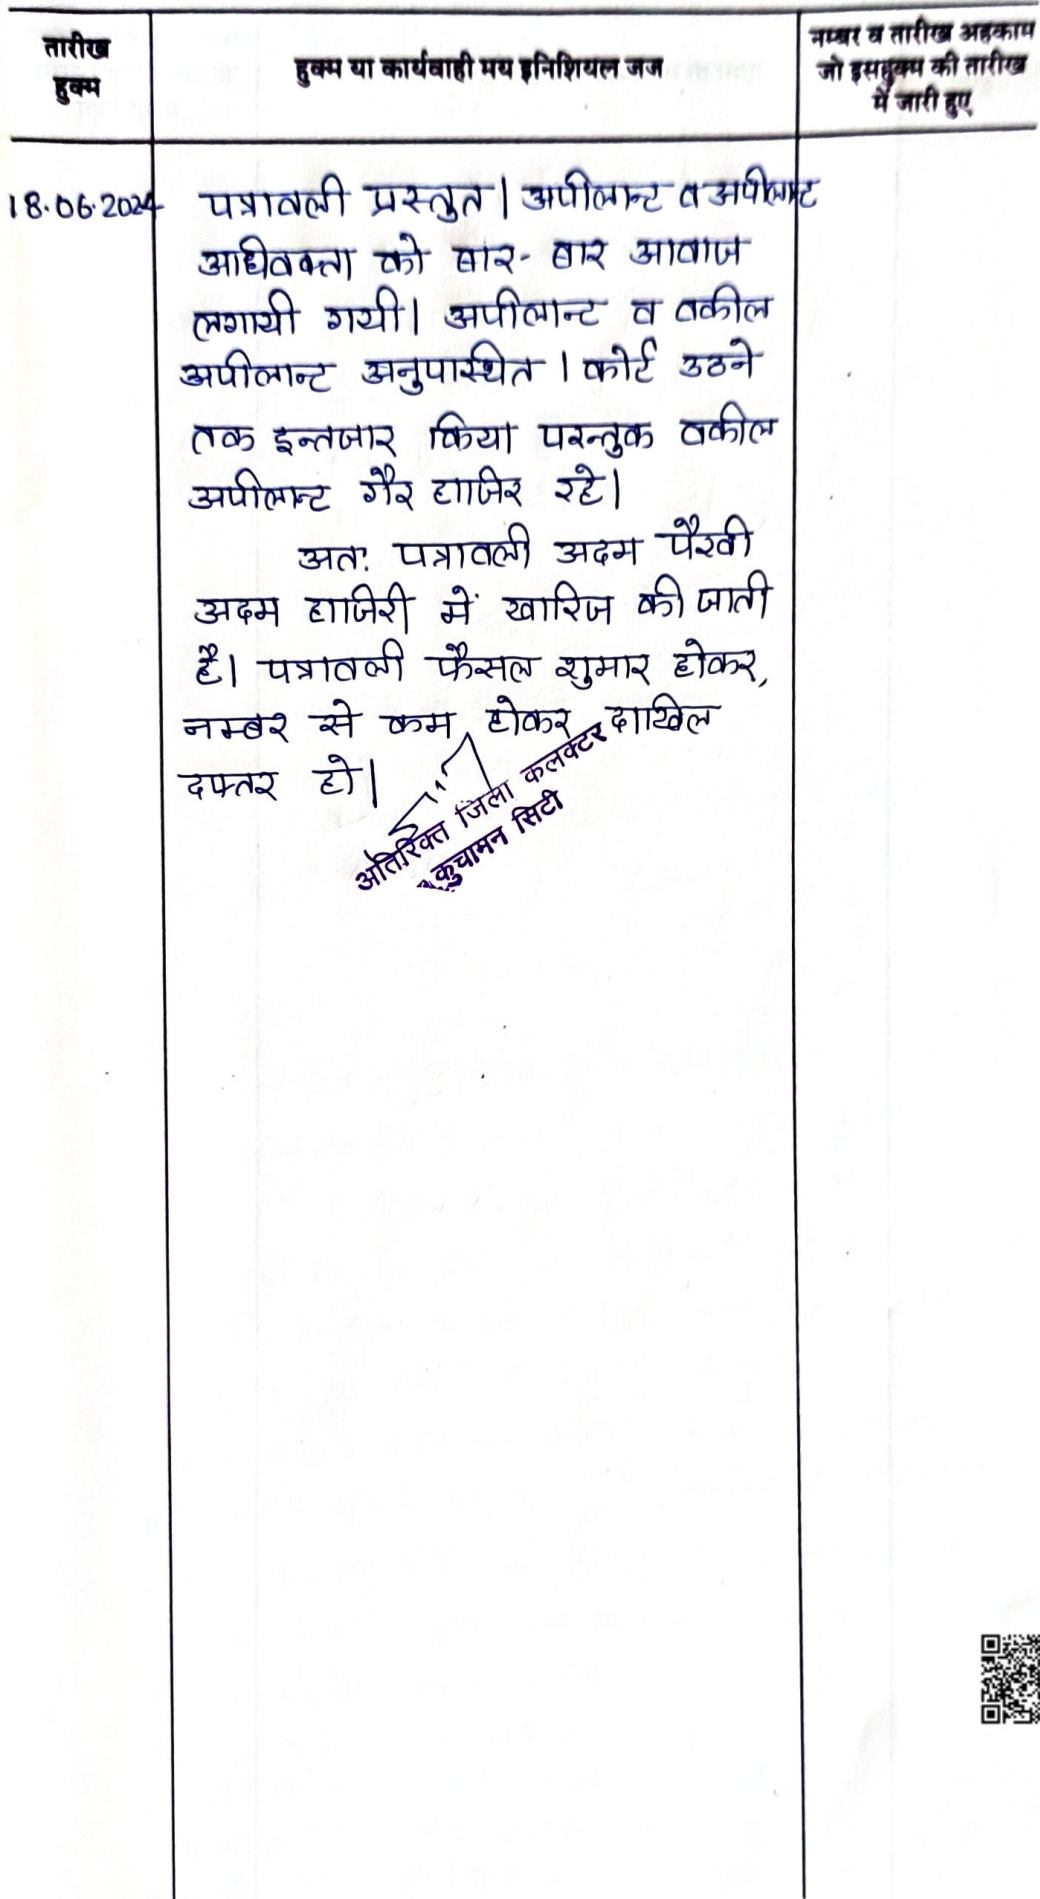 तारीख
हुक्म
हुक्म या कार्यवाही मय इनिशियल जज
नम्बर व तारीख अहकाम
जो इसहुक्म की तारीख
में जारी हुए
18.06.2024 पत्रावली प्रस्तुत। अपीलान्ट व अपीलान्ट
अधिवक्ता को बार-बार आवाज
लगायी गयी। अपीलान्ट व वकील
अपीलान्ट अनुपास्थित। कोर्ट उठने
तक इन्तजार किया परन्तुक वकील
अपीलान्ट गैर हाजिर रहे।
अतः पत्रावली अदम पैरवी
अदम हाजिरी में खारिज की जाती
है। पत्रावली फैसल शुमार होकर,
नम्बर से कम होकर दाखिल
दफ्तर हो।
अतिरिक्त जिला कलक्टर
कुचामन सिटी